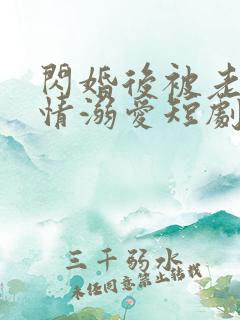 閃婚後被老
情溺愛短劇
三千弱水
未经同意禁止转载